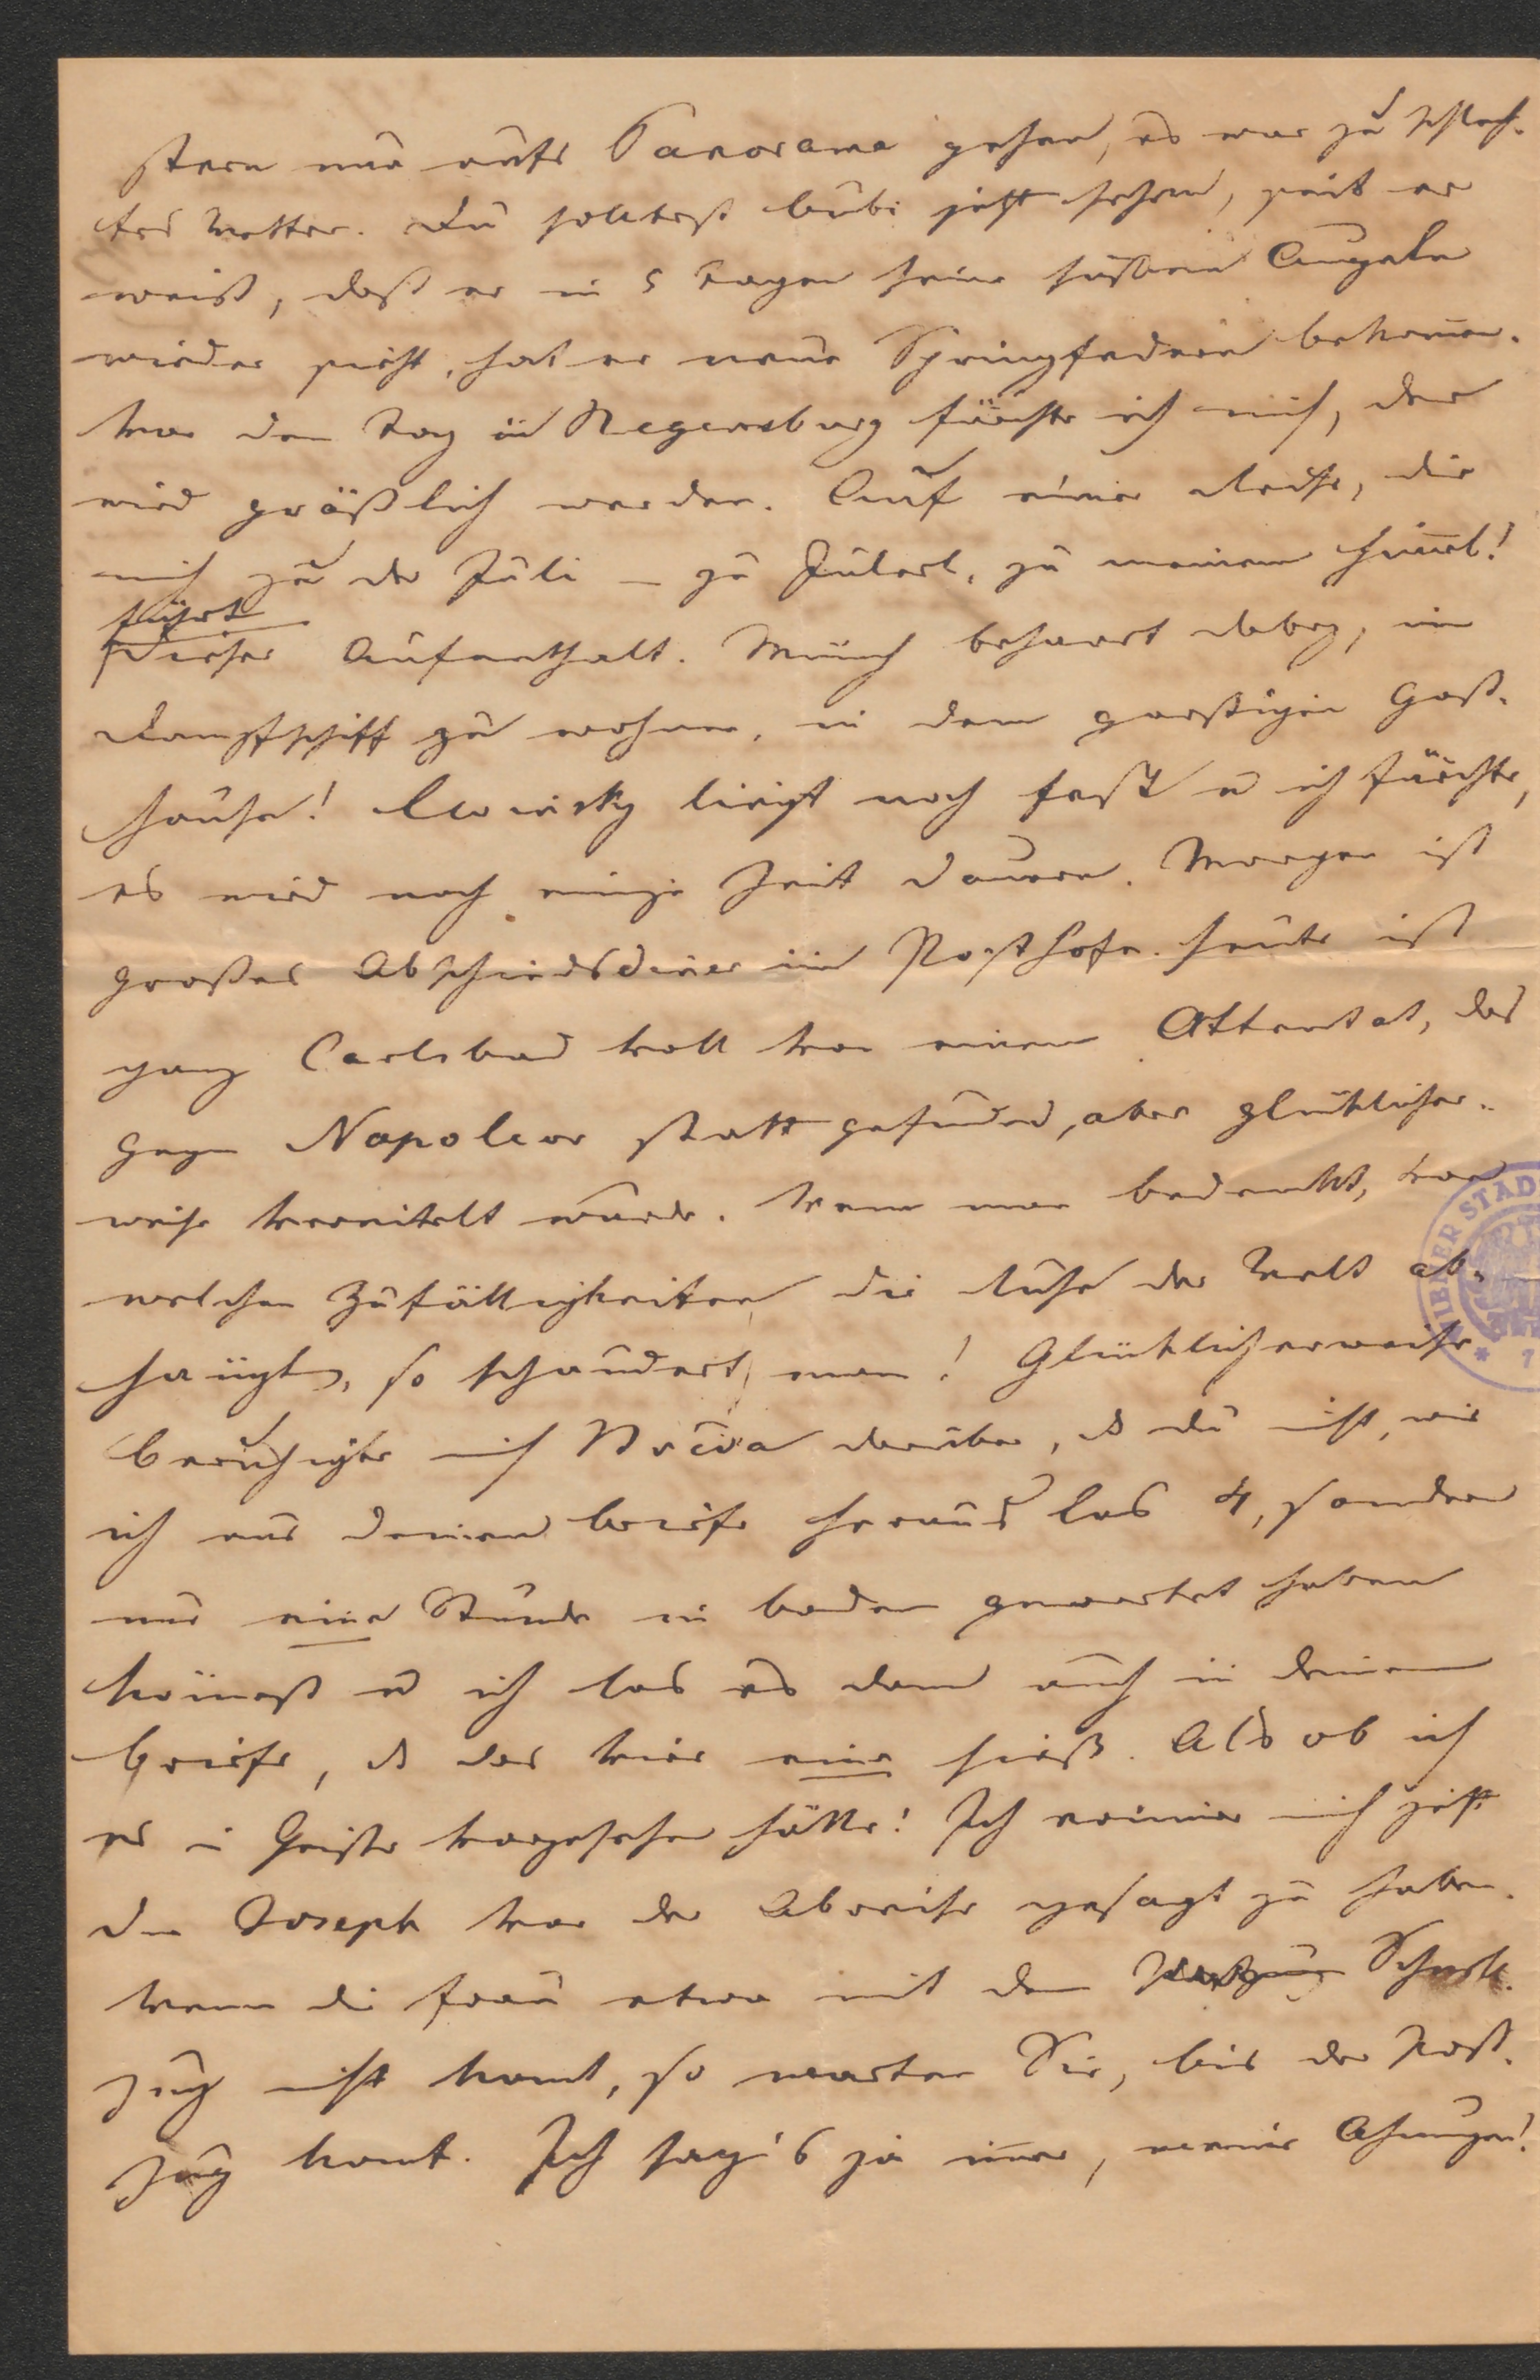 stern nur aufs Panorama gehen, es war zu schlech-
tes Wetter. Du solltest Bubi jetzt sehen, seit er
weiß, daß er in 5 Tagen seine süßen Augerln
wieder sieht, hat er neue Springfedern bekomen.
Vor dem Tag in Regensburg fürchte ich mich, der
wird gräßlich werden. Auf einer Reise, die
mich zu der Juli – zu Julerl, zu meinem Himel!
führt
dieser Aufenthalt. Münch beharrt dabey, im
Dampfschiff zu wohnen, in dem garstigen Gast-
hause! Lewinsky liegt noch fest u ich fürchte,
es wird noch einige Zeit dauern. Morgen ist
großes Abschiedsdiner im Posthofe. Heute ist
ganz Carlsbad voll von einem Attentat, das
gegen Napoleon stattgefunden, aber glücklicher-
weise vereitelt wurde. Wenn man bedenkt, von
welchen Zufälligkeiten die Ruhe der Welt ab-
hängt, so schaudert man! Glücklicherweise
beruhigte mich darüber, ds du nicht, wie
ich aus deinem Briefe herauslas 4, sondern
nur eine Stunde in Baden gewartet haben
könnest u ich las es dann auch in deinem
Briefe, ds das vier eine hieß. Als ob ich
es i Geiste vorgesehen hätte! Ich erinnere mich jetzt
dem Joseph vor der Abreise gesagt zu haben.
Wenn die Frau etwa mit dem Schnell-
zug nicht komt, so warten Sie, bis der Post-
zug komt. Ich sag's ja imer, meine Ahnungen!
WIENER STAD